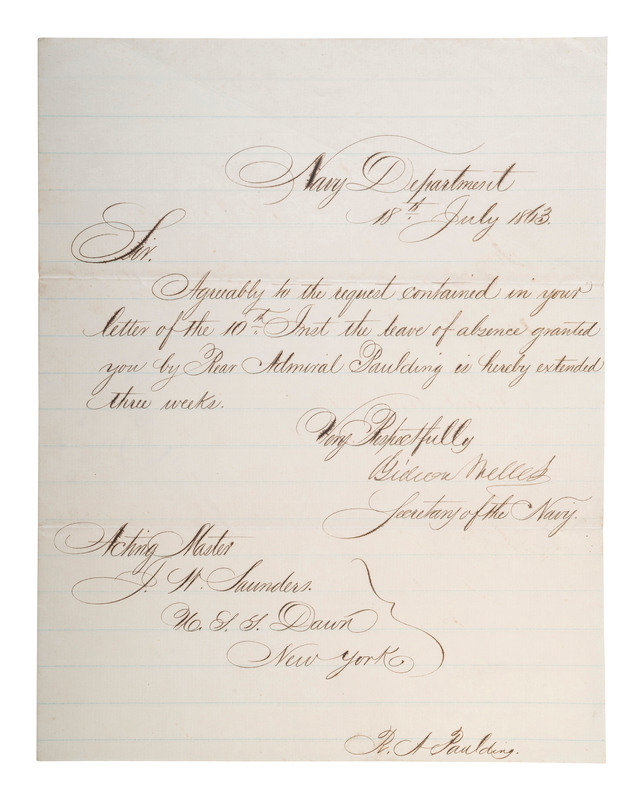 Navy Department
18th July 1863.
Sir.
Agreeably to the request contained in your
letter of the 10th Inst the leave of absence granted
you by Rear Admiral Paulding is hereby extended
three weeks.
Very Respectfully
Gideon Welles
Secretary of the Navy.
Acting Master
J. W. Saunders.
U. S. S. Dawn
New York
R. A Paulding.